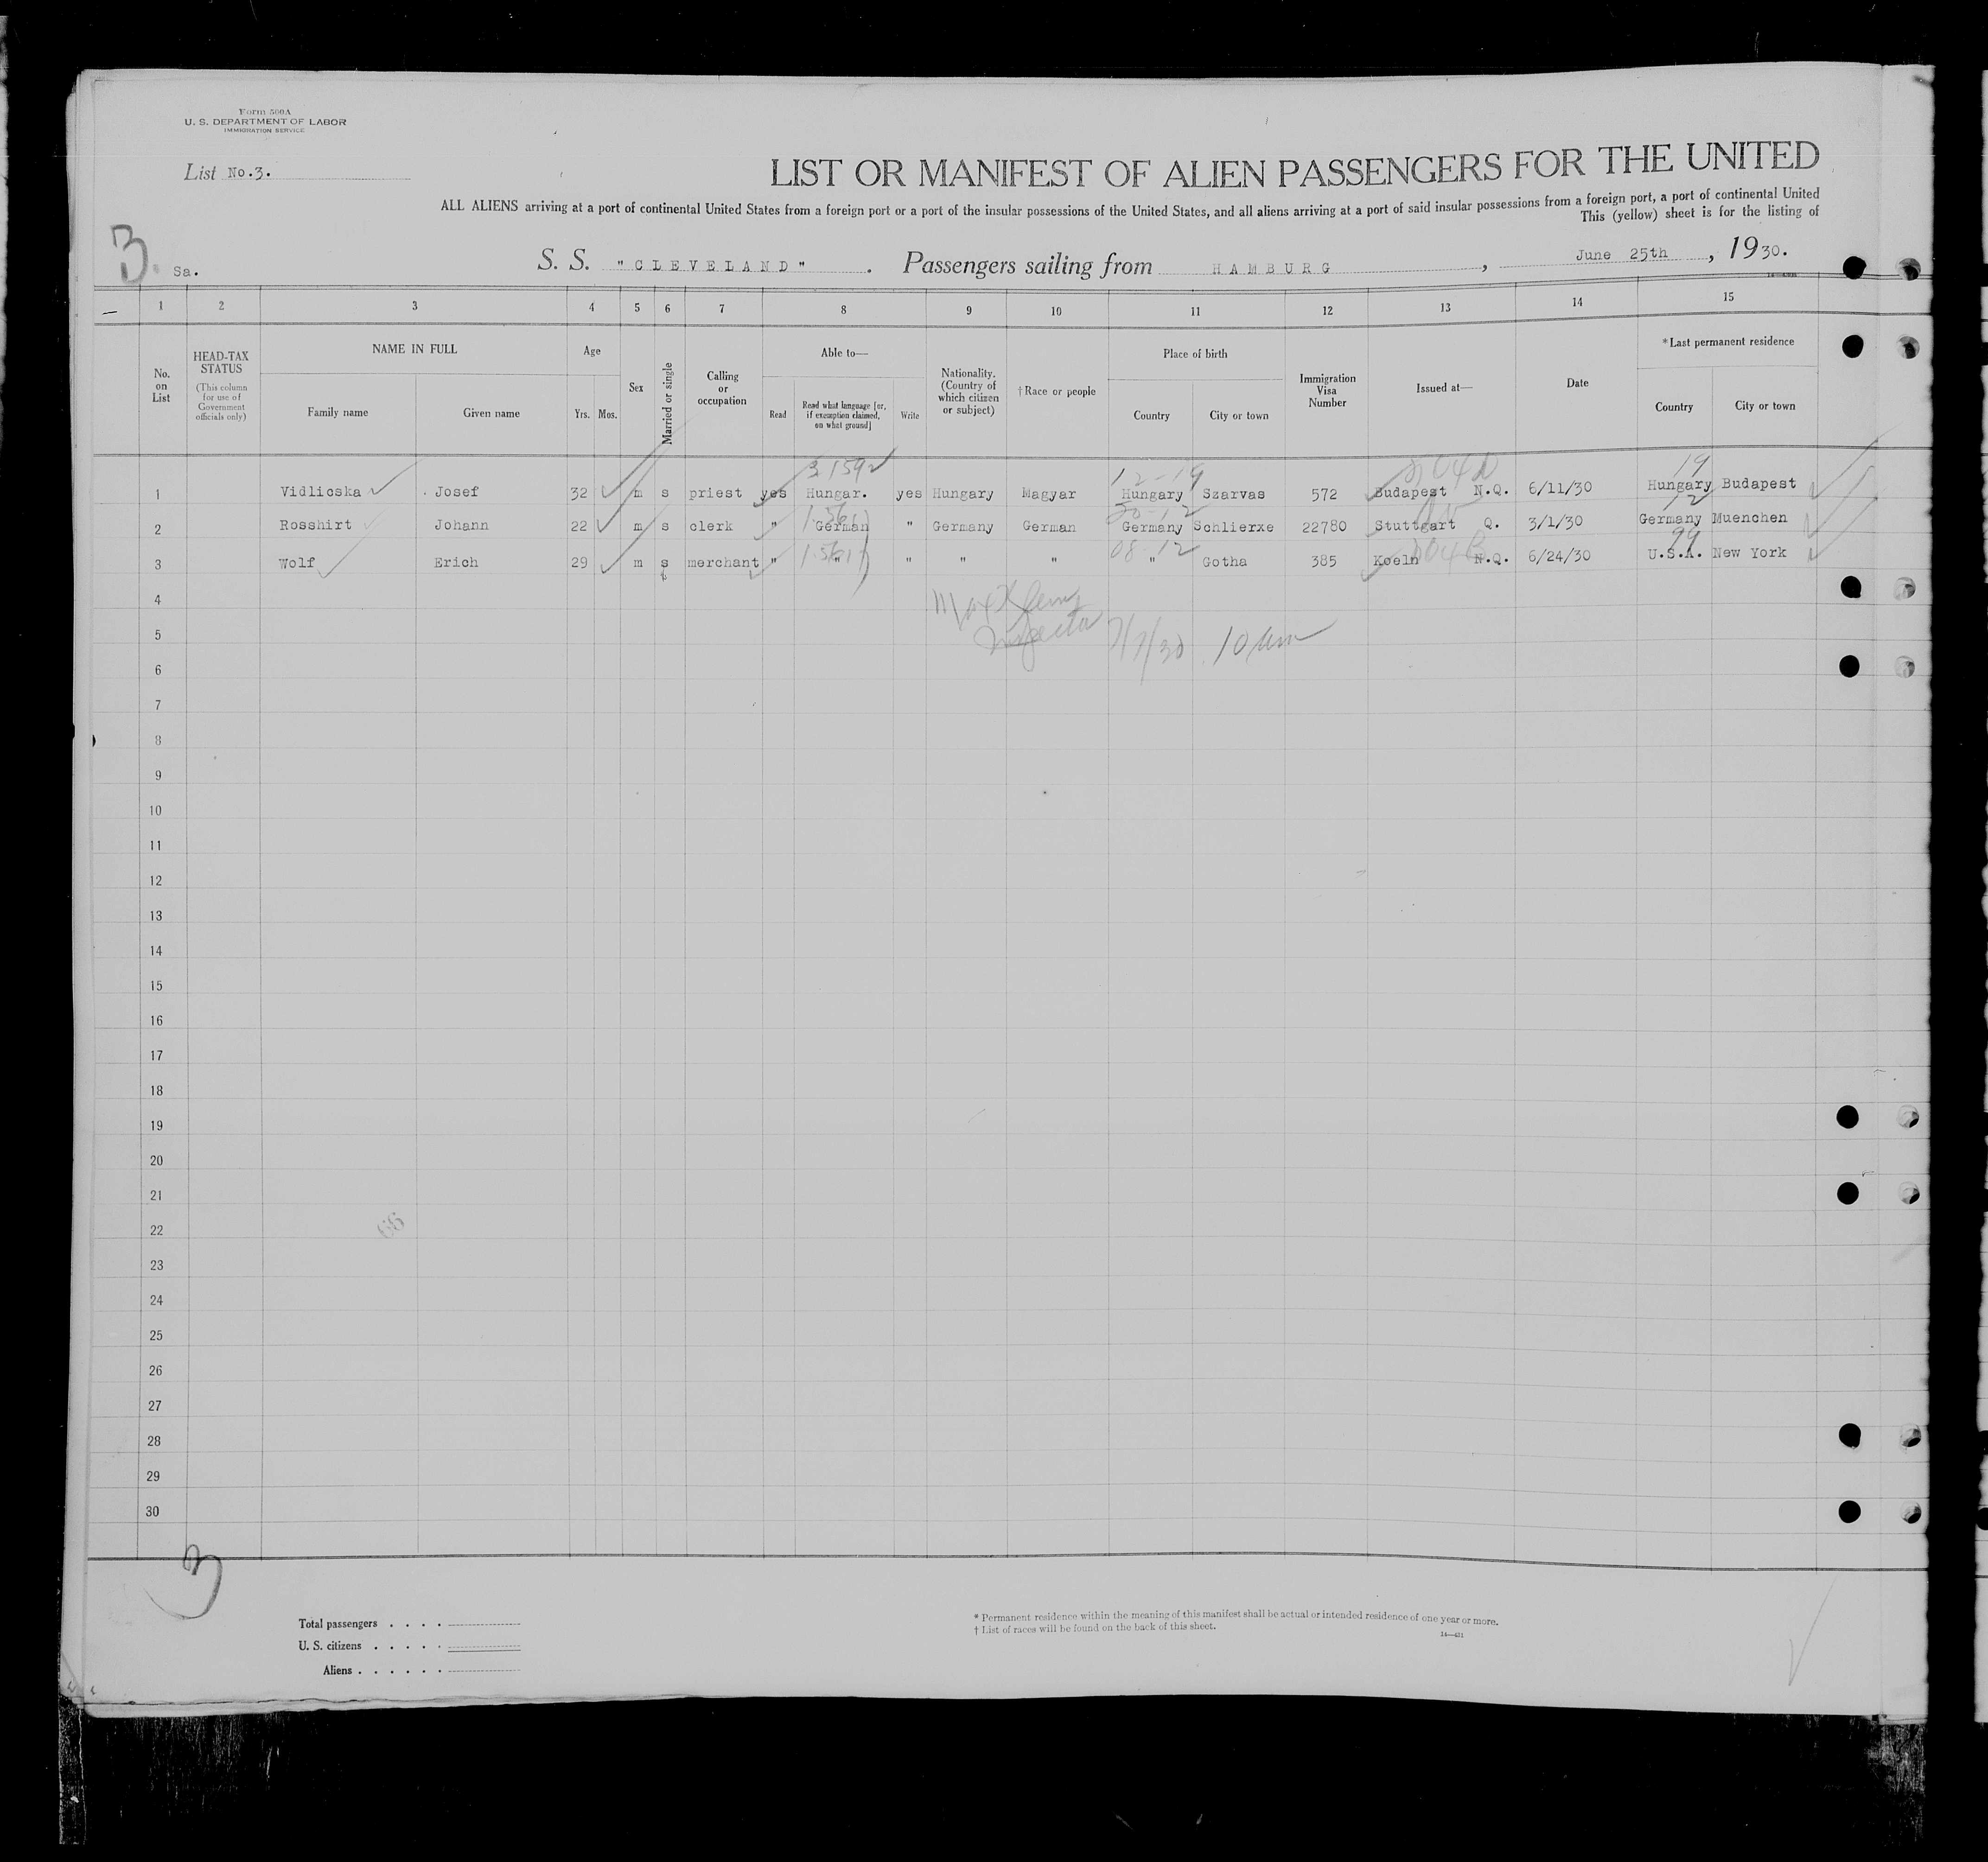 Form 500A
U. S. DEPARTMENT OF LABOR
IMMIGRATION SERVICE
List No.3.
LIST OR MANIFEST OF ALIEN PASSENGERS FOR THE UNITED
ALL ALIENS arriving at a port of continental United States from a foreign port or a port of the insular possessions of the United States, and all aliens arriving at a port of said insular possessions from a foreign port, a port of continental United
This (yellow) sheet is for the listing of
3. Sa.
S. S. "CLEVELAND". Passengers sailing from HAMBURG, June 25th, 1930.
1 2 3 4 5 6 7 8 9 10 11 12 13 14 15
No. on List
HEAD-TAX STATUS
(This column for use of Government officials only)
NAME IN FULL
Family name Given name
Age
Yrs. Mos.
Sex
Married or single
Calling or occupation
Able to—
Read
Read what language [or, if exemption claimed, on what ground]
Write
Nationality. (Country of which citizen or subject)
† Race or people
Place of birth
Country City or town
Immigration Visa Number
Issued at—
Date
* Last permanent residence
Country City or town
3 159 12-19 19
1 Vidlicska Josef 32 m s priest yes Hungar. yes Hungary Magyar Hungary Szarvas 572 Budapest N.Q. 6/11/30 Hungary Budapest
12
2 Rosshirt Johann 22 m s clerk " German " Germany German Germany Schlierxe 22780 Stuttgart Q. 3/1/30 Germany Muenchen
08-12 99
3 Wolf Erich 29 m s merchant " " " " " " Gotha 385 Koeln N.Q. 6/24/30 U.S.A. New York
4
Max
5
Inspector 7/7/30 10 am
6
7
8
9
10
11
12
13
14
15
16
17
18
19
20
21
22
66
23
24
25
26
27
28
29
30
3
Total passengers . . . .
U. S. citizens . . . . .
Aliens . . . . . .
* Permanent residence within the meaning of this manifest shall be actual or intended residence of one year or more.
† List of races will be found on the back of this sheet.
14—421